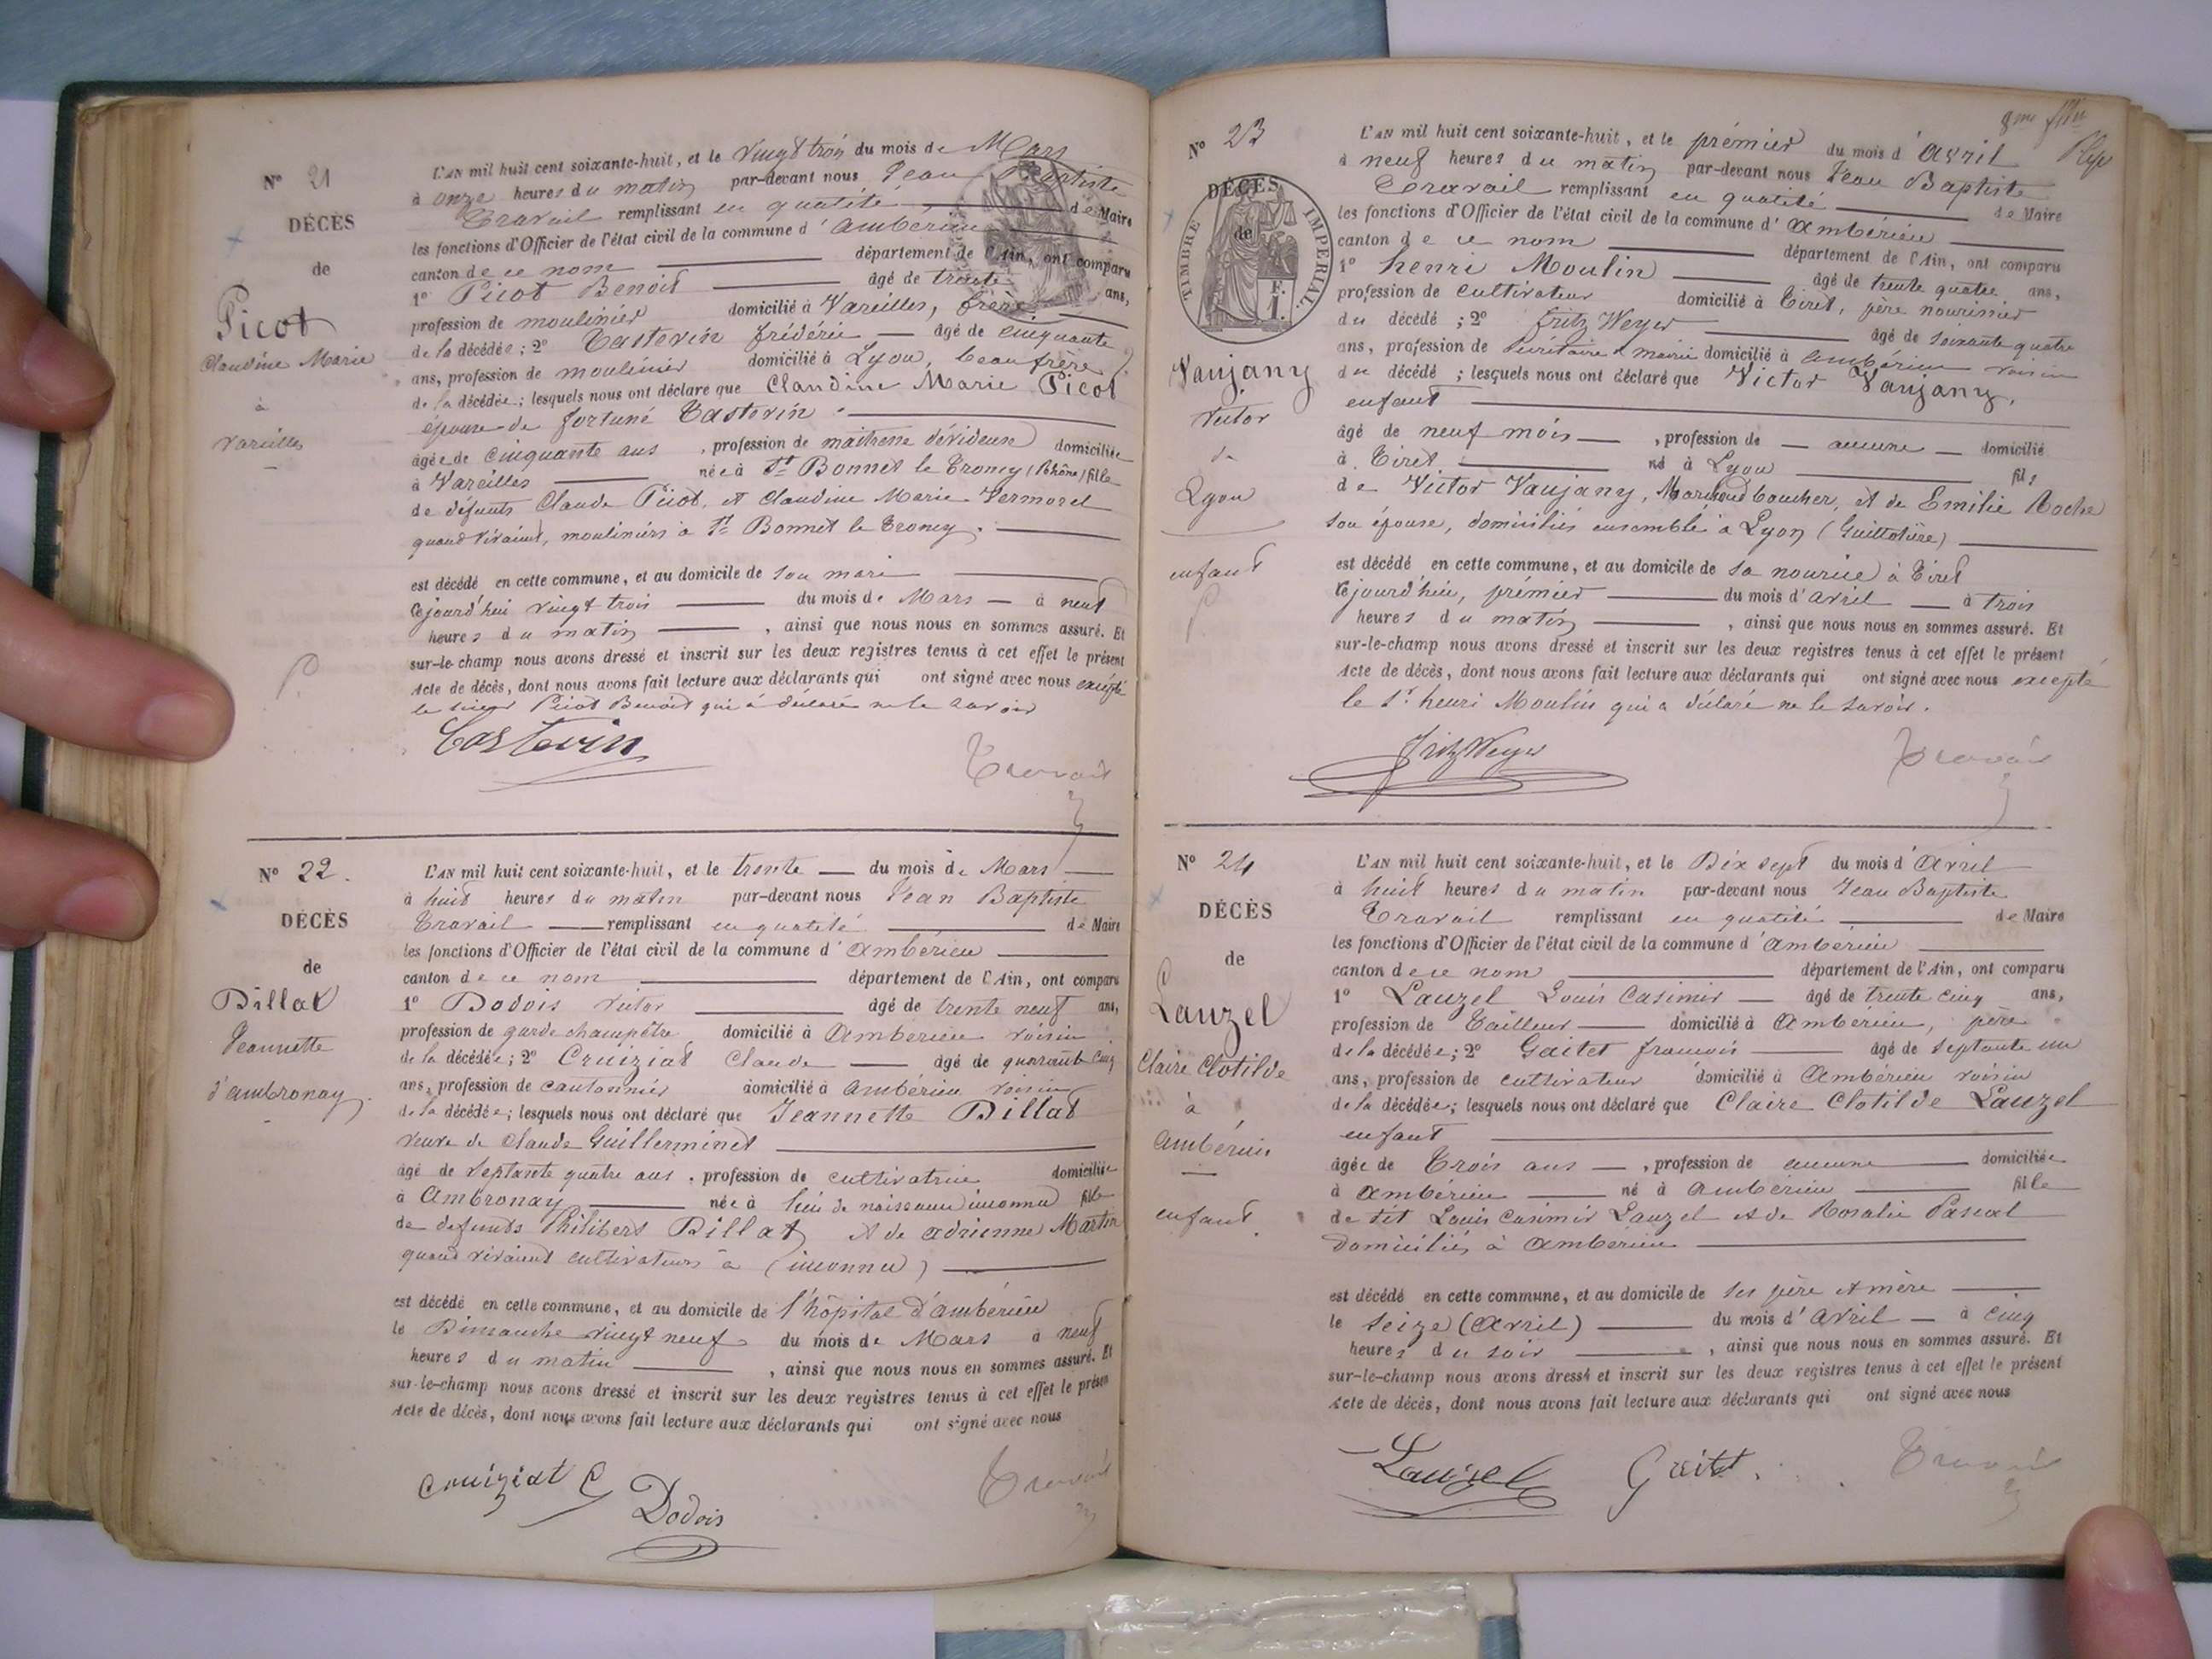 N° 21
DÉCÈS
de
Picot
Claudine Marie
à
Vareilles
L'AN mil huit cent soixante-huit, et le vingt trois du mois de Mars
à onze heures du matin par-devant nous Jean Baptiste
Travail remplissant en qualité de Maire
les fonctions d'Officier de l'état civil de la commune d'Ambérieu
canton de ce nom département de l'Ain, ont comparu
1° Picot Benoit âgé de trente ans,
profession de moulinier domicilié à Vareilles, frère
de la décédée; 2° Tastevin frédéric âgé de cinquante
ans, profession de moulinier domicilié à Lyon, beau frère
de la décédée; lesquels nous ont déclaré que Claudine Marie Picot
épouse de fortuné Tastevin
âgée de cinquante ans, profession de maitresse dévideuse domiciliée
à Vareilles née à St Bonnet le Troncy (Rhône) fille
de défunts Claude Picot, et Claudine Marie Vermorel
quand vivaient, mouliniers à St Bonnet le Troncy.
est décédé en cette commune, et au domicile de son mari
cejourd'hui vingt trois du mois de Mars à neuf
heures du matin, ainsi que nous nous en sommes assuré. Et
sur-le-champ nous avons dressé et inscrit sur les deux registres tenus à cet effet le présent
Acte de décès, dont nous avons fait lecture aux déclarants qui ont signé avec nous excepté
le sieur Picot Benoit qui a déclaré ne le savoir
Tastevin
Travail
N° 22.
DÉCÈS
de
Billat
Jeannette
d'ambronay
L'AN mil huit cent soixante-huit, et le trente du mois de Mars
à huit heures du matin par-devant nous Jean Baptiste
Travail remplissant en qualité de Maire
les fonctions d'Officier de l'état civil de la commune d'Ambérieu
canton de ce nom département de l'Ain, ont comparu
1° Dodois victor âgé de trente neuf ans,
profession de garde champêtre domicilié à Ambérieu voisin
de la décédée; 2° Cruiziat Claude âgé de quarante cinq
ans, profession de cantonnier domicilié à Ambérieu voisin
de la décédée; lesquels nous ont déclaré que Jeannette Billat
veuve de Claude Guillerminet
âgé de septante quatre ans, profession de cultivatrice domiciliée
à Ambronay née à lieu de naissance inconnu fille
de defunts Philibert Billat et de adrienne Martin
quand vivaient cultivateurs à (inconnu)
est décédé en cette commune, et au domicile de l'hôpital d'ambérieu
le Dimanche vingt neuf du mois de Mars à neuf
heures du matin, ainsi que nous nous en sommes assuré. Et
sur-le-champ nous avons dressé et inscrit sur les deux registres tenus à cet effet le présen
Acte de décès, dont nous avons fait lecture aux déclarants qui ont signé avec nous
Cruiziat C
Dodois
Travail
N° 23
DÉCÈS
de
TIMBRE IMPERIAL.
F.
1.
Vaujany
Victor
de
Lyon
enfant
L'AN mil huit cent soixante-huit, et le prémier du mois d'Avril
à neuf heures du matin par-devant nous Jean Baptiste
Travail remplissant en qualité de Maire
les fonctions d'Officier de l'état civil de la commune d'Ambérieu
canton de ce nom département de l'Ain, ont comparu
1° henri Moulin âgé de trente quatre ans,
profession de cultivateur domicilié à Tiret, père nourricier
du décédé; 2° fritz Weyer âgé de soixante quatre
ans, profession de secrétaire d mairie domicilié à ambérieu voisin
du décédé; lesquels nous ont déclaré que Victor Vaujany,
enfant
âgé de neuf mois, profession de aucune domicilié
à Tiret né à Lyon fils
de Victor Vaujany, Marchand boucher, et de Emilie Roche
son épouse, domiciliés ensemble à Lyon (Guillotière)
est décédé en cette commune, et au domicile de sa nourrice à Tiret
cejourd'hui, prémier du mois d'avril à trois
heures du matin, ainsi que nous nous en sommes assuré. Et
sur-le-champ nous avons dressé et inscrit sur les deux registres tenus à cet effet le présent
Acte de décès, dont nous avons fait lecture aux déclarants qui ont signé avec nous excepté
le Sr. henri Moulin qui a déclaré ne le savoir.
Fritz Weyer
Travail
N° 24
DÉCÈS
de
Lauzel
Claire Clotilde
à
ambérieu
enfant
L'AN mil huit cent soixante-huit, et le Dix sept du mois d'Avril
à huit heures du matin par-devant nous Jean Baptiste
Travail remplissant en qualité de Maire
les fonctions d'Officier de l'état civil de la commune d'Ambérieu
canton de ce nom département de l'Ain, ont comparu
1° Lauzel Louis Casimir âgé de trente cinq ans,
profession de Tailleur domicilié à Ambérieu, père
de la décédée; 2° Gaitet françois âgé de septante un
ans, profession de cultivateur domicilié à Ambérieu voisin
de la décédée; lesquels nous ont déclaré que Claire Clotilde Lauzel
enfant
âgée de Trois ans, profession de aucune domiciliée
à Ambérieu né à Ambérieu fille
de dit Louis Casimir Lauzel et de Rosalie Pascal
domiciliés à Ambérieu
est décédé en cette commune, et au domicile de ses père et mère
le seize (Avril) du mois d'Avril à cinq
heures du soir, ainsi que nous nous en sommes assuré. Et
sur-le-champ nous avons dressé et inscrit sur les deux registres tenus à cet effet le présent
Acte de décès, dont nous avons fait lecture aux déclarants qui ont signé avec nous
Lauzel
Gaitet.
Travail